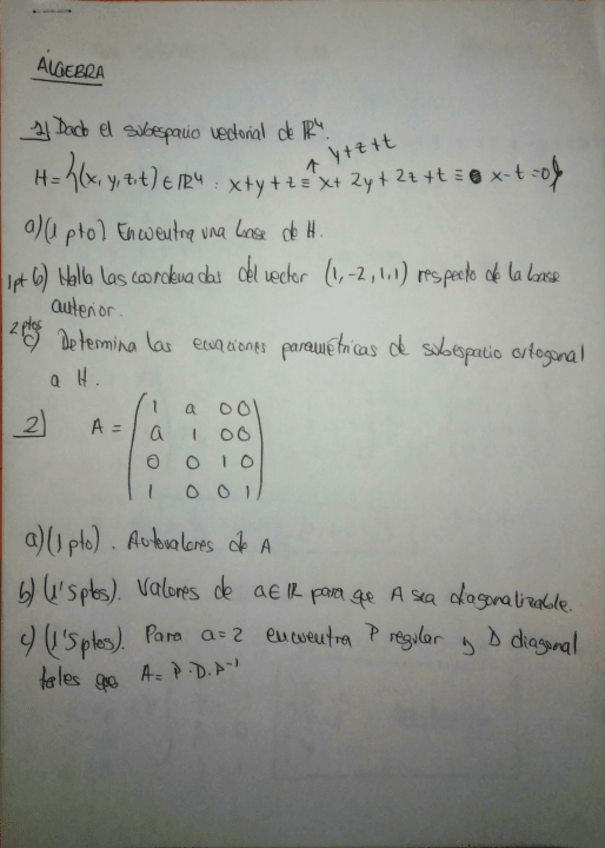 ÁLGEBRA
1) Dado el subespacio vectorial de ℝ⁴.
y+z+t
H={(x, y, z, t) ∈ ℝ⁴ : x+y+z ≡ x+2y+2z+t ≡ x-t=0}
a) (1 pto) Encuentra una base de H.
1pt b) Halla las coordenadas del vector (1,-2,1,1) respecto de la base
anterior.
2ptos c) Determina las ecuaciones paramétricas de subespacio ortogonal
a H.
2) A = ( 1 a 0 0
a 1 0 0
0 0 1 0
1 0 0 1 )
a) (1 pto). Autovalores de A
b) (1'5ptos). Valores de a∈ℝ para qe A sea diagonalizable.
c) (1'5ptos). Para a=2 encuentra P regular y D diagonal
tales que A= P·D·P⁻¹